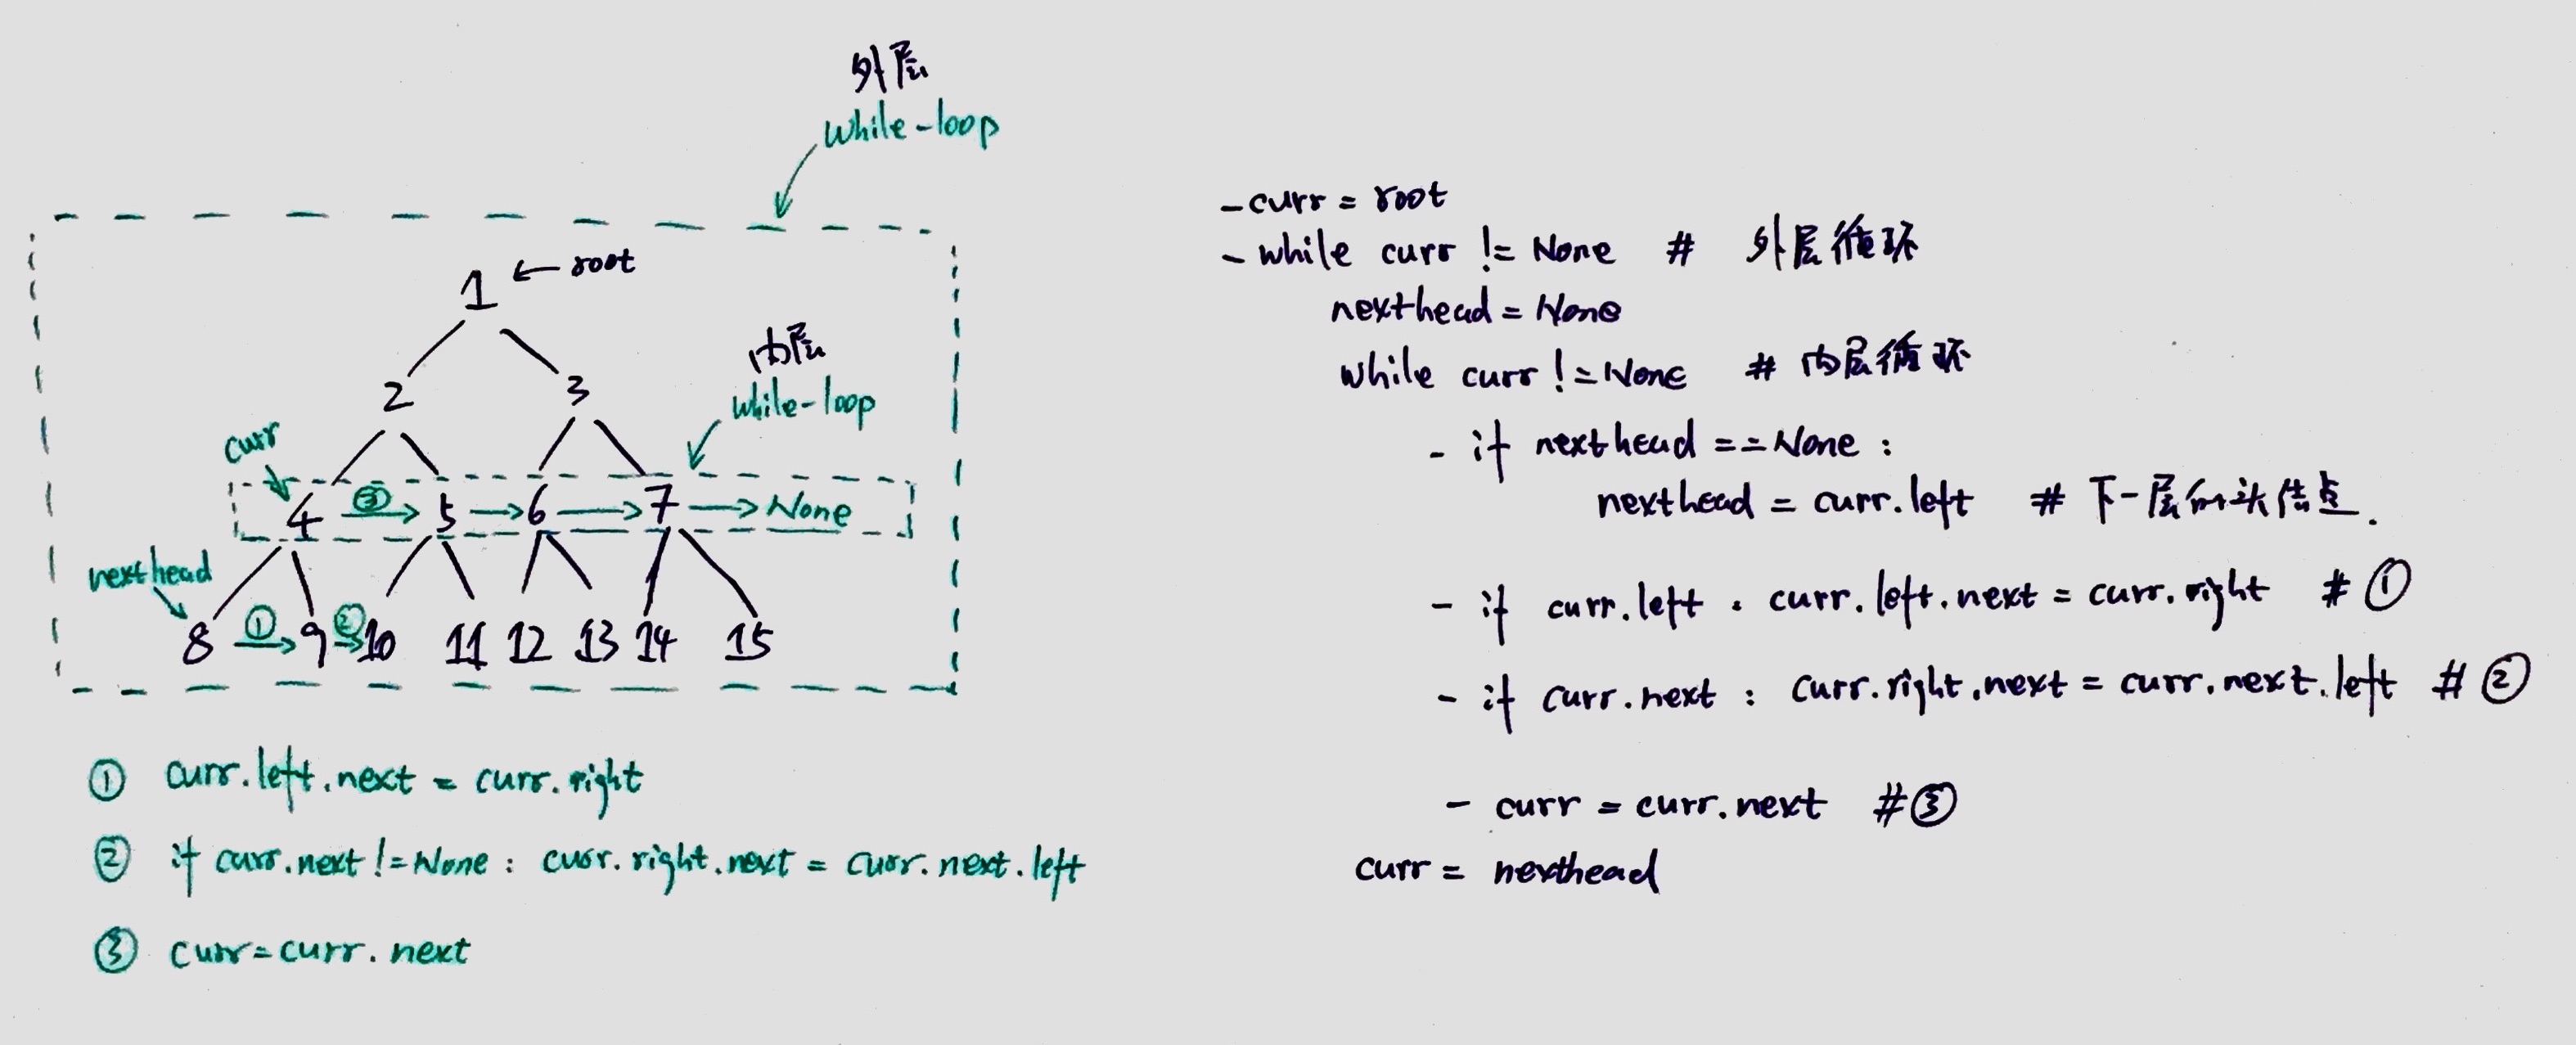 外层
while-loop
1 ← root
内层
while-loop
2 3
curr
4 ③ 5 6 7 None
nexthead
8 ① 9 ② 10 11 12 13 14 15
① curr.left.next = curr.right
② if curr.next != None : curr.right.next = curr.next.left
③ curr = curr.next
- curr = root
- while curr != None # 外层循环
nexthead = None
while curr != None # 内层循环
- if nexthead == None :
nexthead = curr.left # 下一层的头结点.
- if curr.left . curr.left.next = curr.right # ①
- if curr.next : curr.right.next = curr.next.left # ②
- curr = curr.next # ③
curr = nexthead